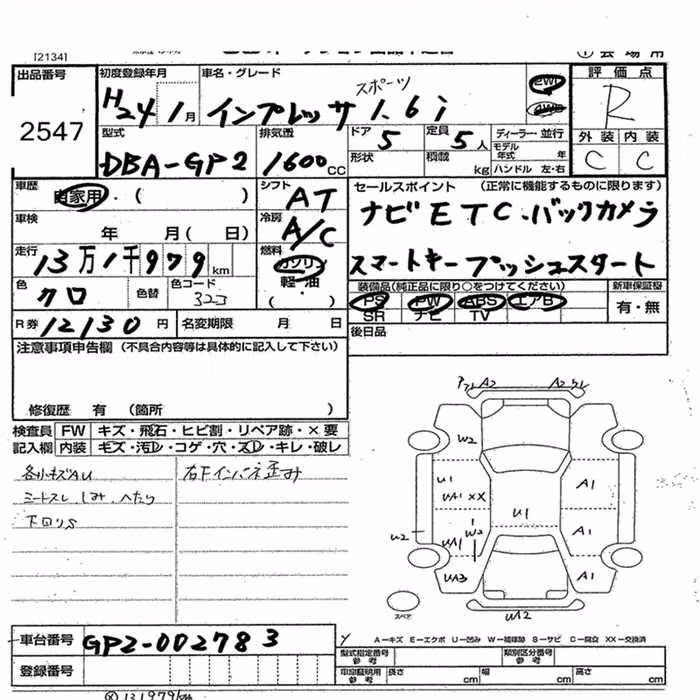 [2134]
① 会 場 用
出品番号
2547
初度登録年月
H24 1月
車名・グレード
スポーツ
インプレッサ 1.6i
2WD
4WD
評 価 点
R
外 装 内 装
C C
型式
DBA-GP2
排気量
1600 CC
ドア
5
定員
5 人
形状
積載
kg
ディーラー・並行
モデル年式 年
ハンドル 左・右
車歴
自家用・( )
シフト
AT
セールスポイント (正常に機能するものに限ります)
ナビ ETC.バックカメラ
スマートキー プッシュスタート
車検
年 月( 日)
冷房
A/C
走行
13万1千979 km
燃料
ガソリン
軽・油
( )
色
クロ
色替
色コード
323
装備品(純正品に限り○をつけてください)
PS PW ABS エアB
SR ナビ TV
新車保証書
有・無
R 券 12130 円
名変期限 月 日
後日品
注意事項申告欄 (不具合内容等は具体的に記入して下さい)
修復歴 有 (箇所 )
検査員記入欄
FW キズ・飛石・ヒビ割・リペア跡・×要
内装 キズ・汚れ・コゲ・穴・スレ・キレ・破レ
各小キズAU
シートスレ、しみ、へたり
下回りS
右Fインパネ歪み
A2 A2
W2
U1
UA1 XX
U1
A1
U2
UA1
W2
A1
UA3
A1
UA2
スペア
A－キズ E－エクボ U－凹み W－補修跡 S－サビ C－腐食 XX－交換済
車台番号 GP2-002783
登録番号
型式指定番号 参考
類別区分番号 参考
車庫証明用 参考
長さ cm 幅 cm 高さ cm
131979km